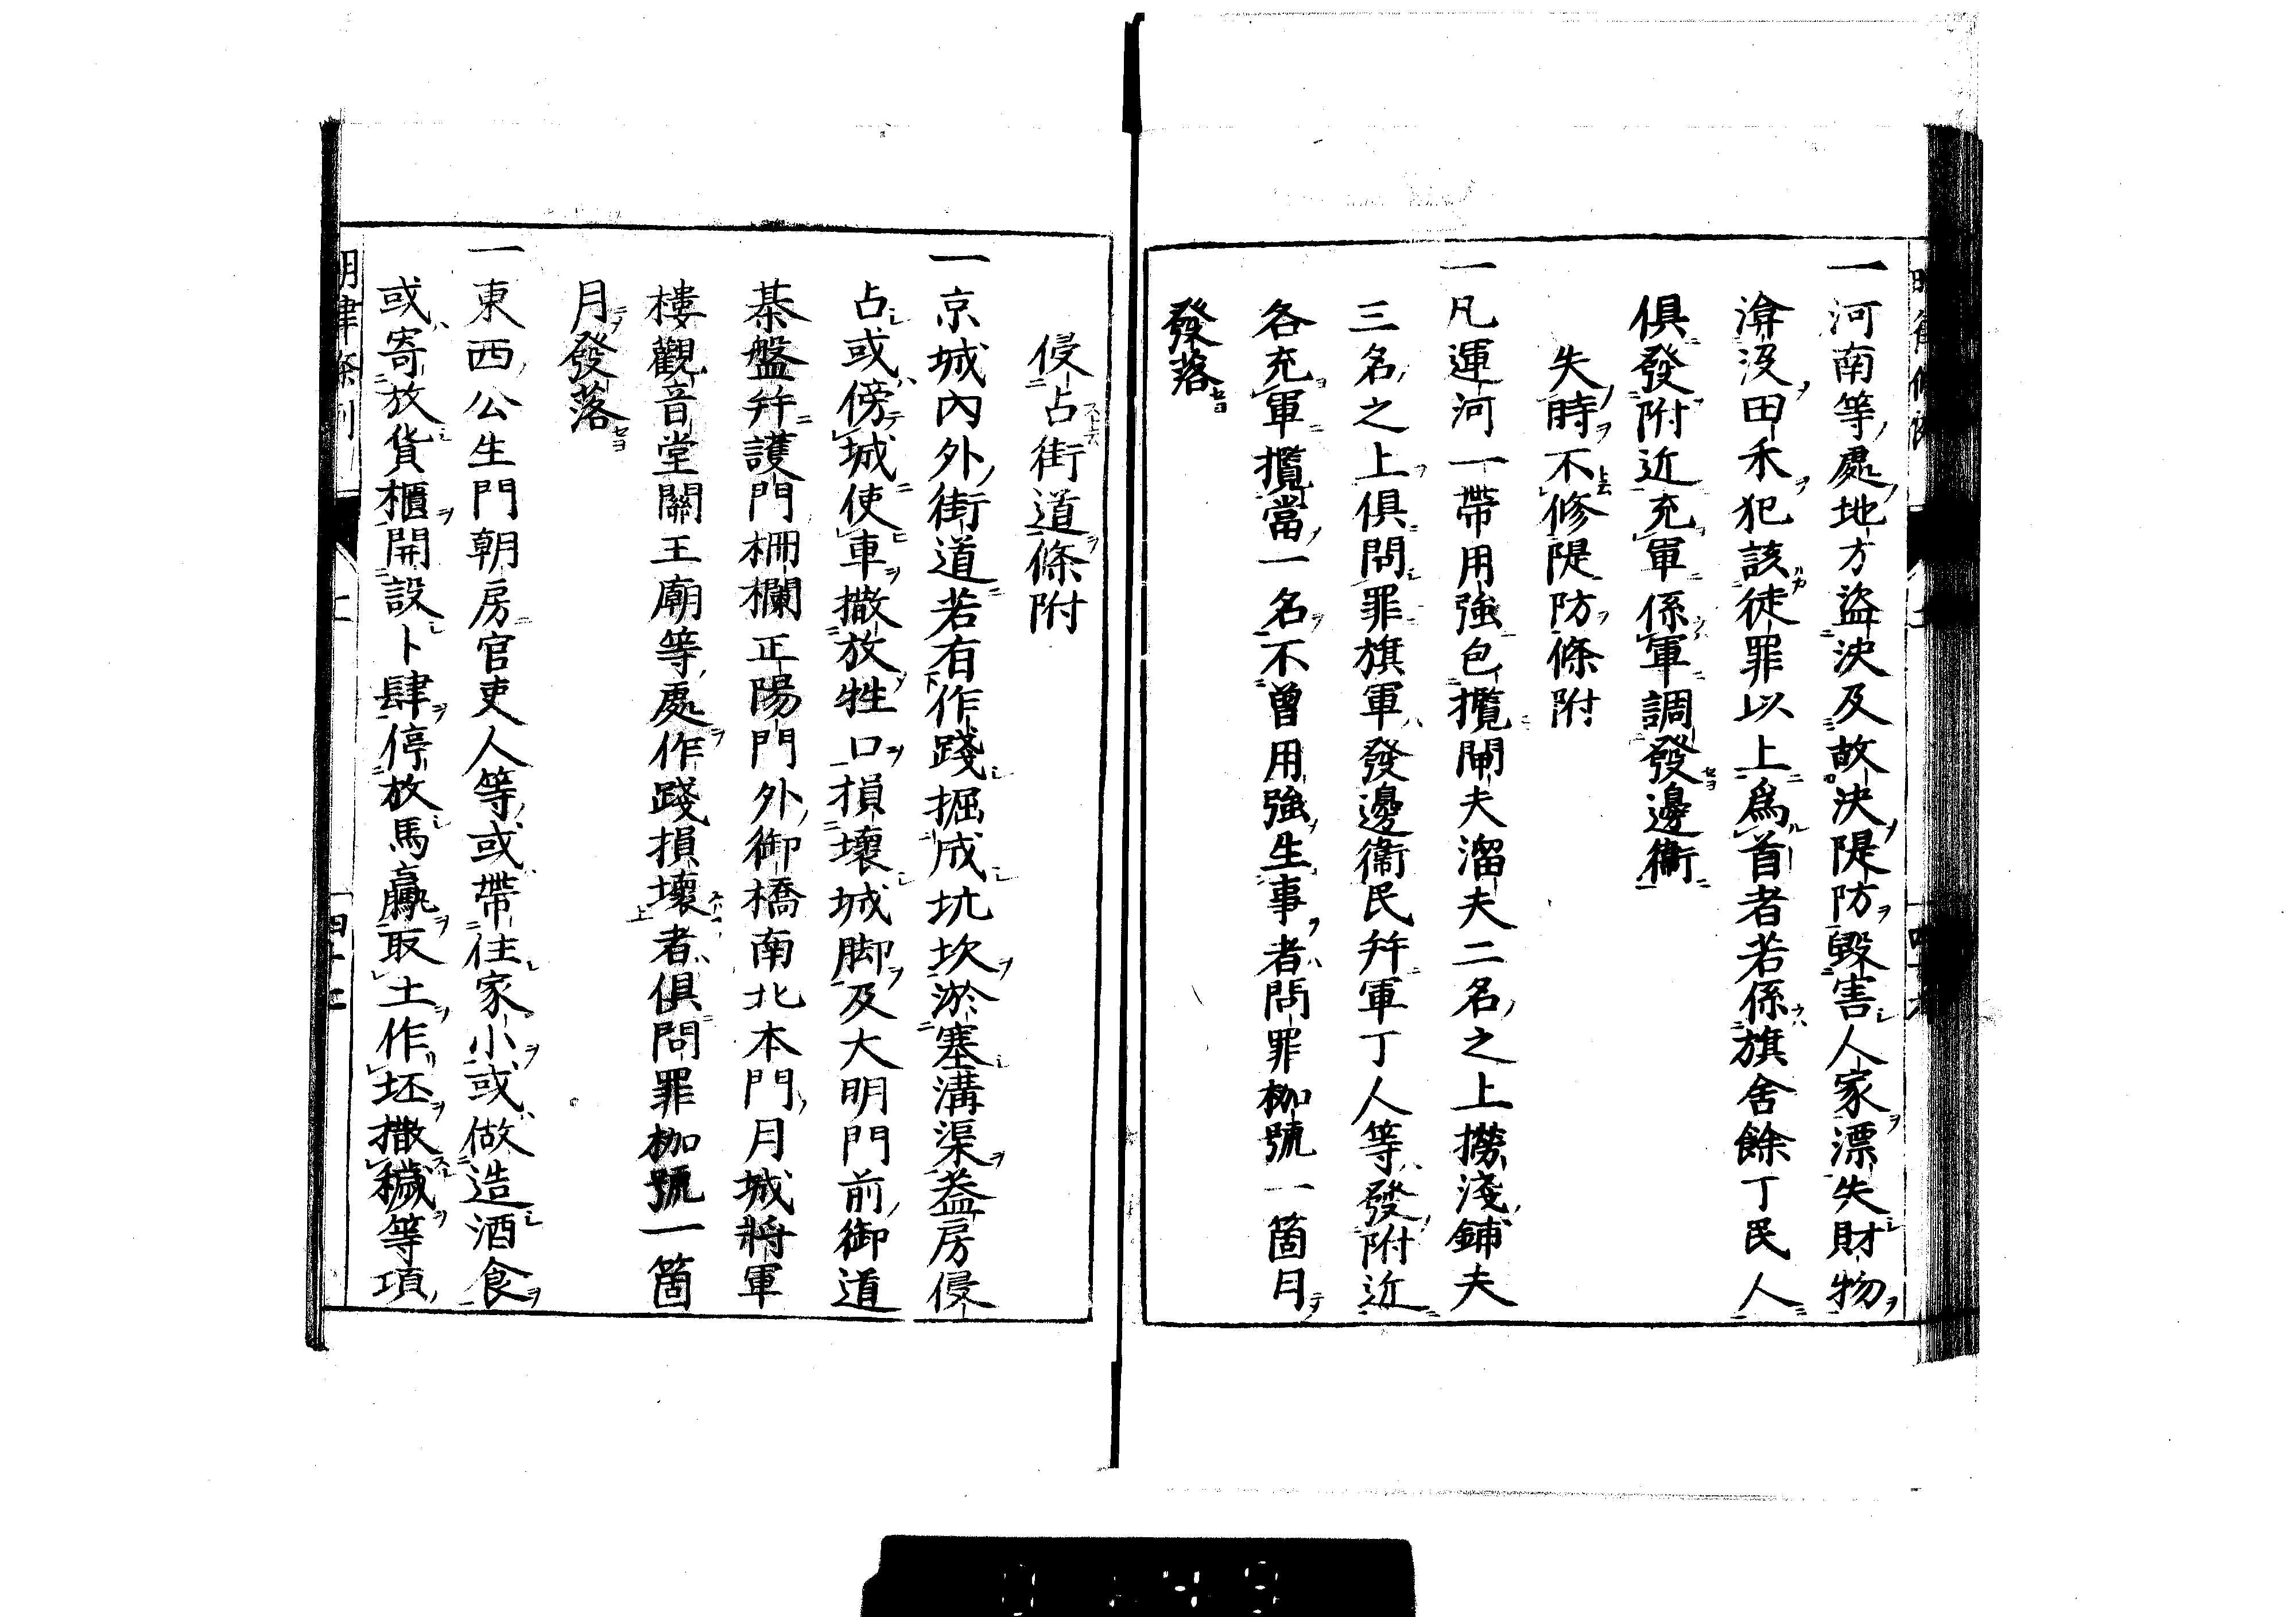 一河南等處地方盜決及故決隄防毀害人家漂失財物
渰沒田禾犯該徒罪以上爲首者若係旗舍餘丁民人
俱發附近充軍係軍調發邊衞
失時不修隄防條附
一凡運河一帶用強包攬閘夫溜夫二名之上撈淺鋪夫
三名之上俱問罪旗軍發邊衞民幷軍丁人等發附近
各充軍攬當一名不曾用強生事者問罪枷號一箇月
發落
侵占街道條附
一京城內外街道若有作踐掘成坑坎淤塞溝渠蓋房侵
占或傍城使車撒放牲口損壞城脚及大明門前御道
棊盤幷護門柵欄正陽門外御橋南北本門月城將軍
樓觀音堂關王廟等處作踐損壞者俱問罪枷號一箇
月發落
一東西公生門朝房官吏人等或帶住家小或做造酒食
或寄放貨櫃開設卜肆停放馬驘取土作坯撒穢等項
明律條例 上